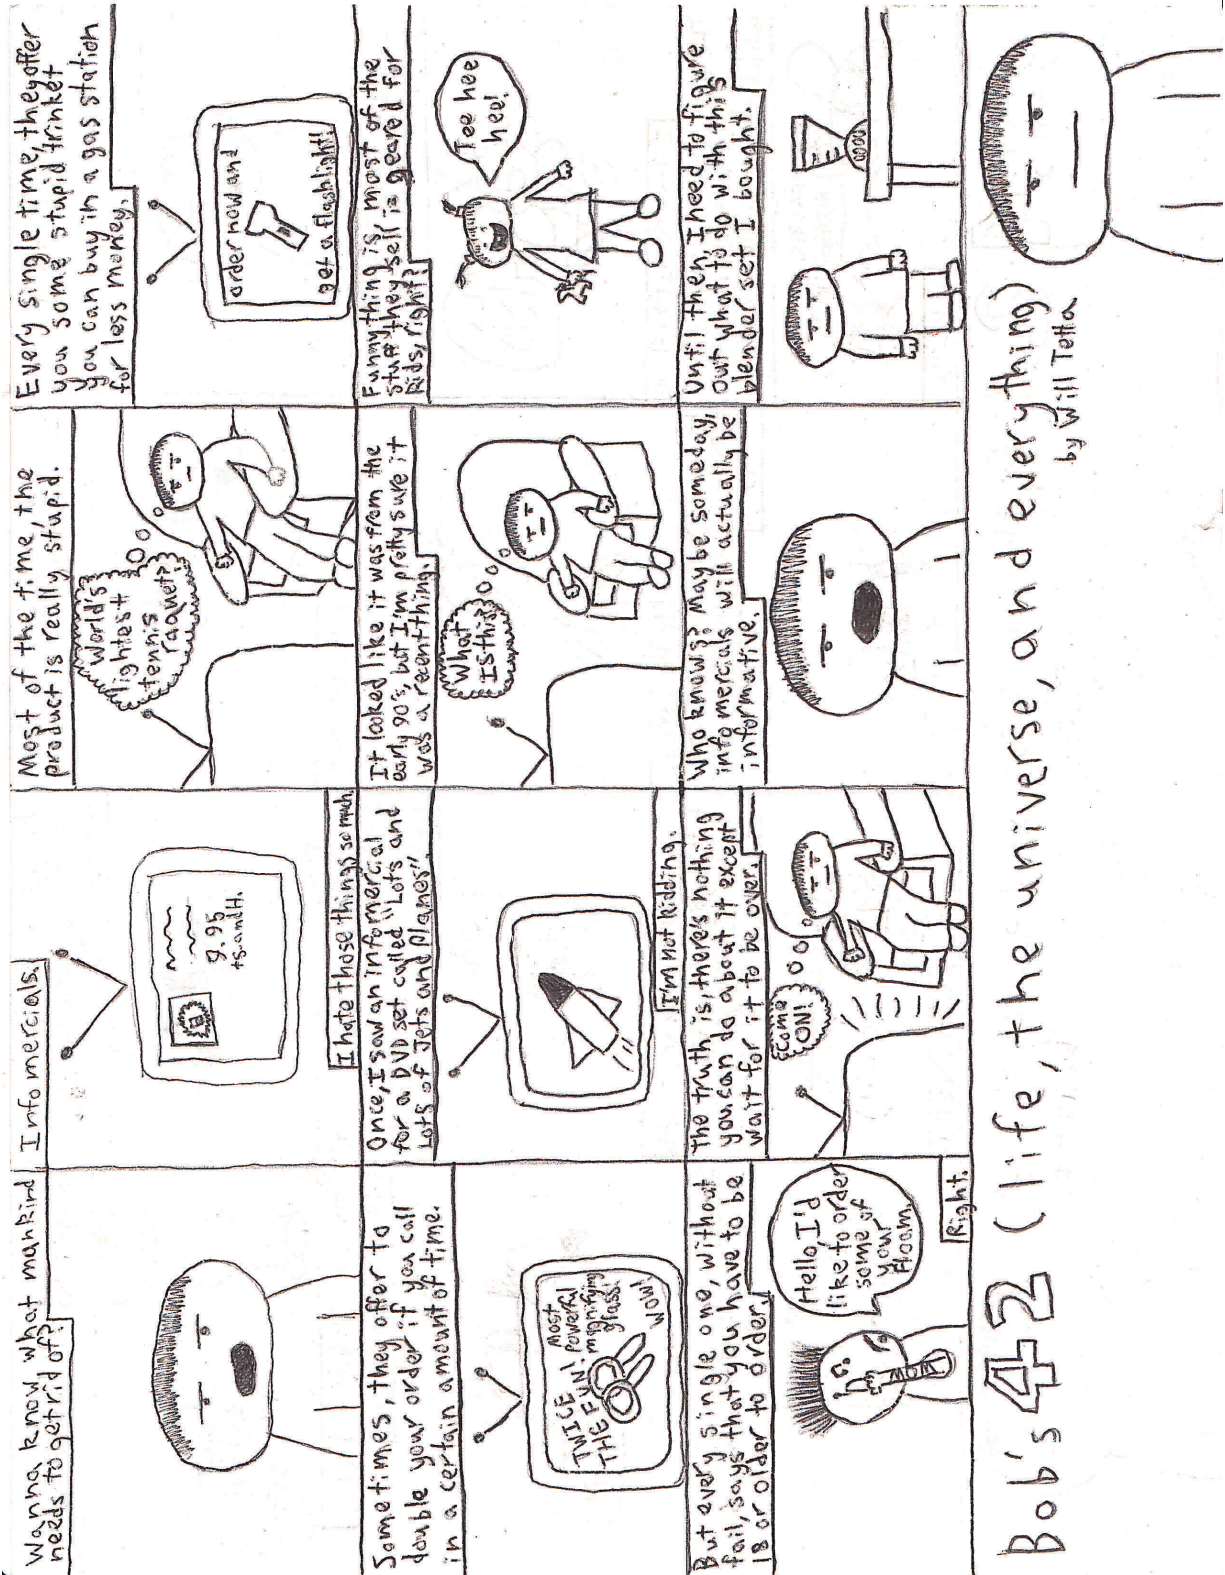 Wanna know what mankind
needs to get rid of?
Infomercials.
9.95
+s.andH.
I hate those things so much.
Most of the time, the
product is really stupid.
World's
lightest
tennis
raquet?
Every single time, they offer
you some stupid trinket
you can buy in a gas station
for less money.
order now and
get a flashlight!
Sometimes, they offer to
double your order if you call
in a certain amount of time.
TWICE
THE FUN!
most
powerful
magnifying
glass!
WOW!
Once, I saw an infomercial
for a DVD set called "Lots and
Lots of Jets and Planes".
I'm not kidding.
It looked like it was from the
early 90's, but I'm pretty sure it
was a recent thing.
What
Is this?
Funny thing is, most of the
stuff they sell is geared for
kids, right?
Tee hee
hee!
But every single one, without
fail, says that you have to be
18 or older to order.
Hello, I'd
like to order
some of
your
Floam.
Right.
The truth is, there's nothing
you can do about it except
wait for it to be over.
Come
ON!
Who knows? Maybe someday,
infomercials will actually be
informative.
Until then, I need to figure
out what to do with this
blender set I bought.
Bob's 42 (life, the universe, and everything)
by Will Tetta